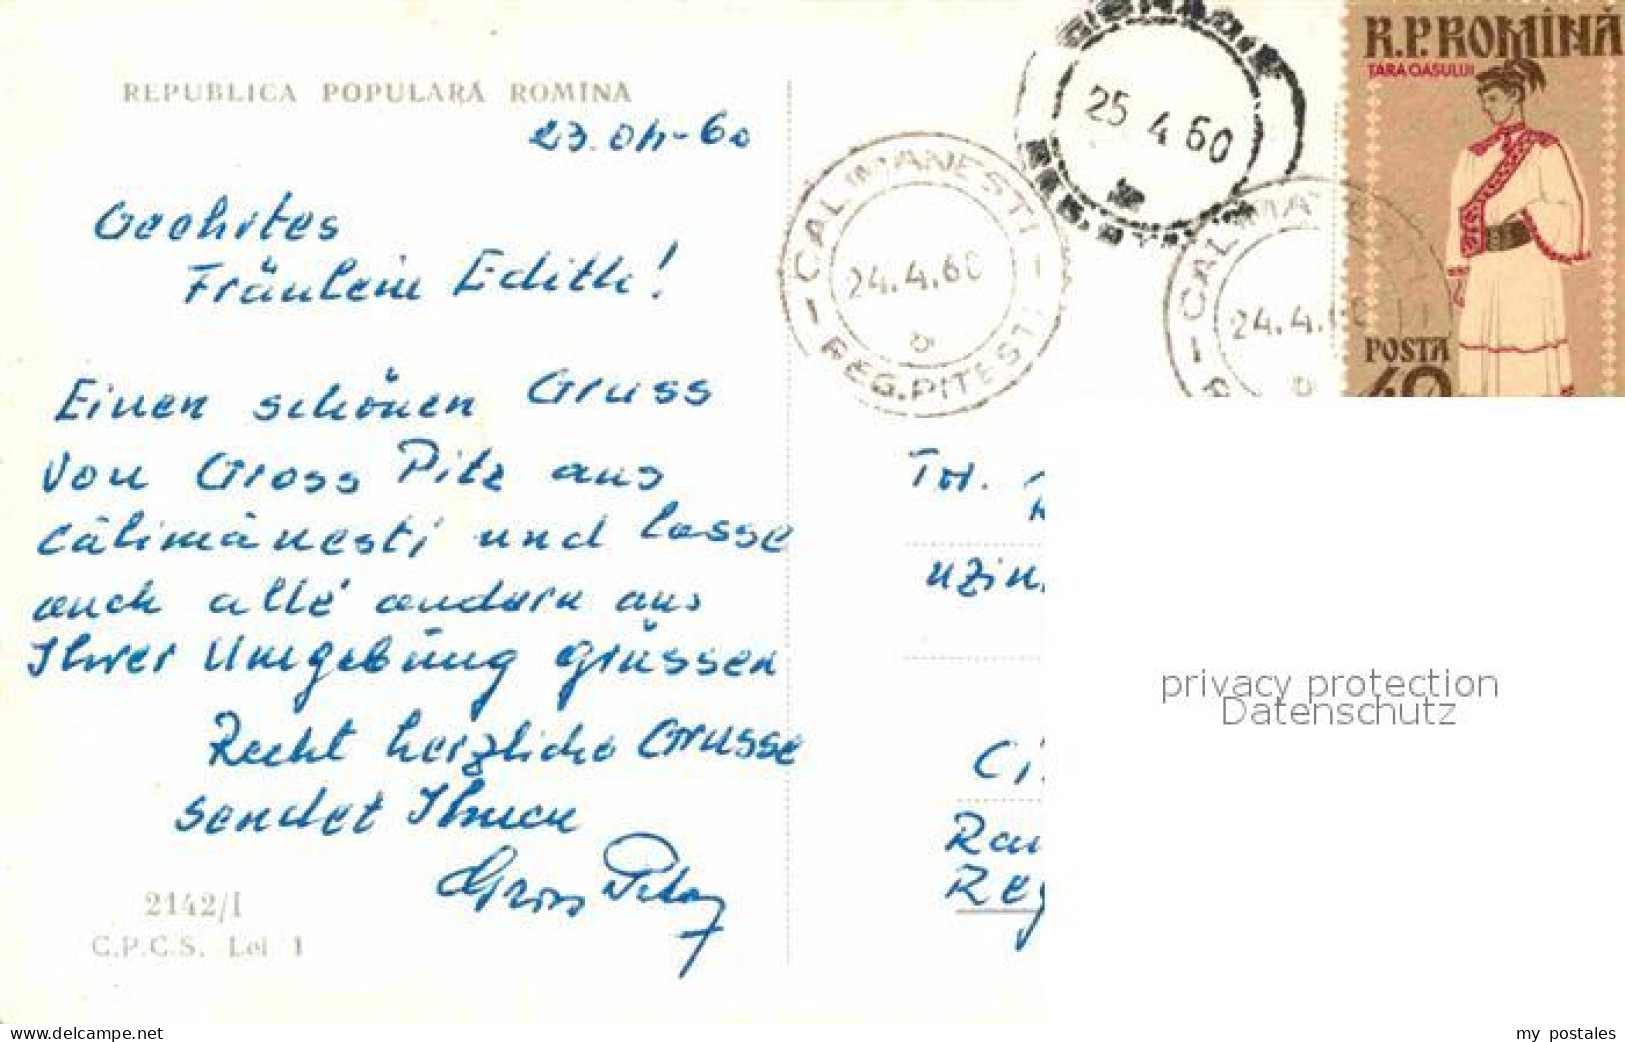 REPUBLICA POPULARĂ ROMÎNĂ
23.04-60
Geehrtes
Fräulein Edith!
Einen schönen Gruss
von Gross Pitz aus
Călimănesti und lasse
auch alle andern aus
Ihrer Umgebūng grüssen
Recht herzliche Grüsse
sendet Ihnen
Gross
2142/I
C.P.C.S. Lei 1
25 4 60
CALIMANESTI
24.4.60
REG. PITESTI
24.4.
R.P.ROMÎNĂ
ȚARA OAȘULUI
POSTA
40
Tov.
uzin
Ci
Rai
Reg
privacy protection
Datenschutz
www.delcampe.net
my_postales